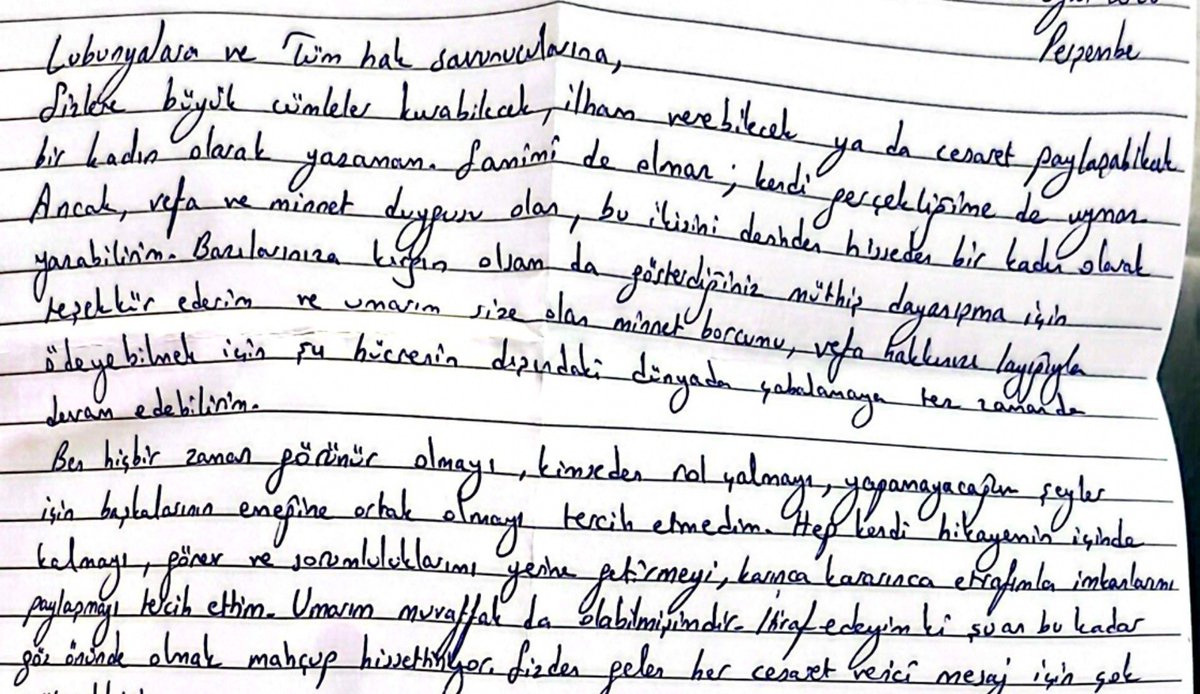 Perşembe
Lubunyalara ve Tüm hak savunucularına,
Sizlere büyük cümleler kurabilecek, ilham verebilecek ya da cesaret paylaşabilecek
bir kadın olarak yazamam. Samimi de olmaz; kendi gerçekliğime de uymaz
Ancak, vefa ve minnet duygusu olan, bu ikisini derinden hisseden bir kadın olarak
yazabilirim. Bazılarınıza kırgın olsam da gösterdiğiniz müthiş dayanışma için
teşekkür ederim ve umarım size olan minnet borcumu, vefa hakkınızı layığıyla
ödeyebilmek için şu hücrenin dışındaki dünyada çabalamaya tez zamanda
devam edebilirim.
Ben hiçbir zaman görünür olmayı, kimseden rol çalmayı, yapamayacağım şeyler
için başkalarının emeğine ortak olmayı tercih etmedim. Hep kendi hikayenin içinde
kalmayı, görev ve sorumluluklarımı yerine getirmeyi, karınca kararınca etrafımla imkanlarımı
paylaşmayı tercih ettim. Umarım muvaffak da olabilmişimdir. İtiraf edeyim ki şuan bu kadar
göz önünde olmak mahçup hissettiriyor. Sizden gelen her cesaret verici mesaj için çok